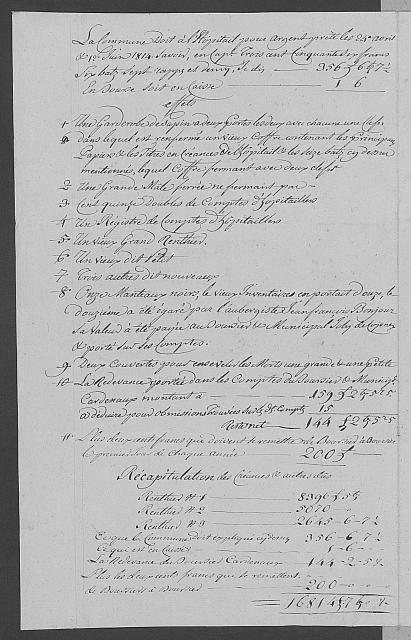 La Commune Doit à l'Hôpital pour argent prêté les 24 avril
& 12e Juin 1814 Savoir, en Cap. Trois cent Cinquante six francs
Six batz Sept rapps et demy, Je dis — 356 £ 6 ß 7½
En Bourse Soit en Caisse — 1 6
Effets
1 Une Garderobe de Sapin a deux portes les deux avec chacune une clefs
dans lequel est renfermé un vieux Coffre contenant les principaux
Papiers & les titres en Créances de l'Hôpital & les Seize batz cy dessus
mentionnés, lequel Coffre fermant avec deux clefs
2 Une Grande Male ferrée ne fermant pas —
3 Cent quinze Doubles de Comptes d'Hôpitaillers
4 Un Registre de Comptes d'Hôpitaillers
5 Un vieux Grand Renthier.
6 Un vieux dit Petit
7 Trois autres dit nouveaux
8 Onze Manteaux noirs, le vieux Inventaires en portait douze, le
douzieme a été égaré par l'aubergiste Jean françois Bonjour
Sa valeur a été payée au Boursier & Municipal
& porté sur Ses Comptes.
9 Deux Couvertes pour ensevelir les Morts une grande & une petite
10 La Redevance portée dans les Comptes du Boursier & Municip.
Cardenaux montant à — 159 £ 2 ß 5
a déduire pour obmissions trouvées sur le dt Compte 15
Reste net — 144 £ 2 ß 5
11 Plus deux cents francs que doivent se remettre de Boursier à Boursier
le premier Jour de chaque année — 200 £
Récapitulation des Créances & autres dûs
Renthier № 1 — 8396 £ 5 ß
Renthier № 2 — 5070
Renthier № 3 — 2645 - 6 - 7½
Ce que la Commune Doit expliqué cy derny 356 - 6 - 7½
Ce qui est en Caisse — 1 - 6
La Redevance du Boursier Cardenaux — 144 - 2 - 5
Plus les deux cents francs que se remettent
de Boursier à Boursier — 200
16814 £